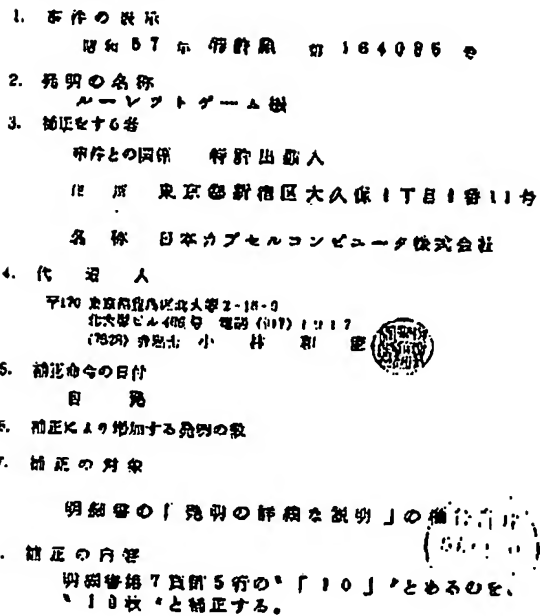 1. 事件の表示
昭和57年 特許願 第164085号
2. 発明の名称
ルーレットゲーム機
3. 補正をする者
事件との関係 特許出願人
住所 東京都新宿区大久保1丁目1番11号
名称 日本カプセルコンピュータ株式会社
4. 代理人
〒170 東京都豊島区北大塚2-16-9
北大塚ビル 電話 (917) 1917
(7528) 弁理士 小林和憲
5. 補正命令の日付
自発
6. 補正により増加する発明の数
7. 補正の対象
明細書の「発明の詳細な説明」の欄
補正の内容
明細書第7頁第5行の"「10」"とあるを、
"10枚"と補正する。